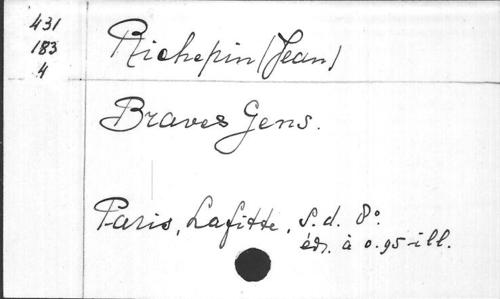 431
183
4
Richepin (Jean)
Braves Gens.
Paris, Lafitte, S. d. 8°.
éd. à 0.95 ill.